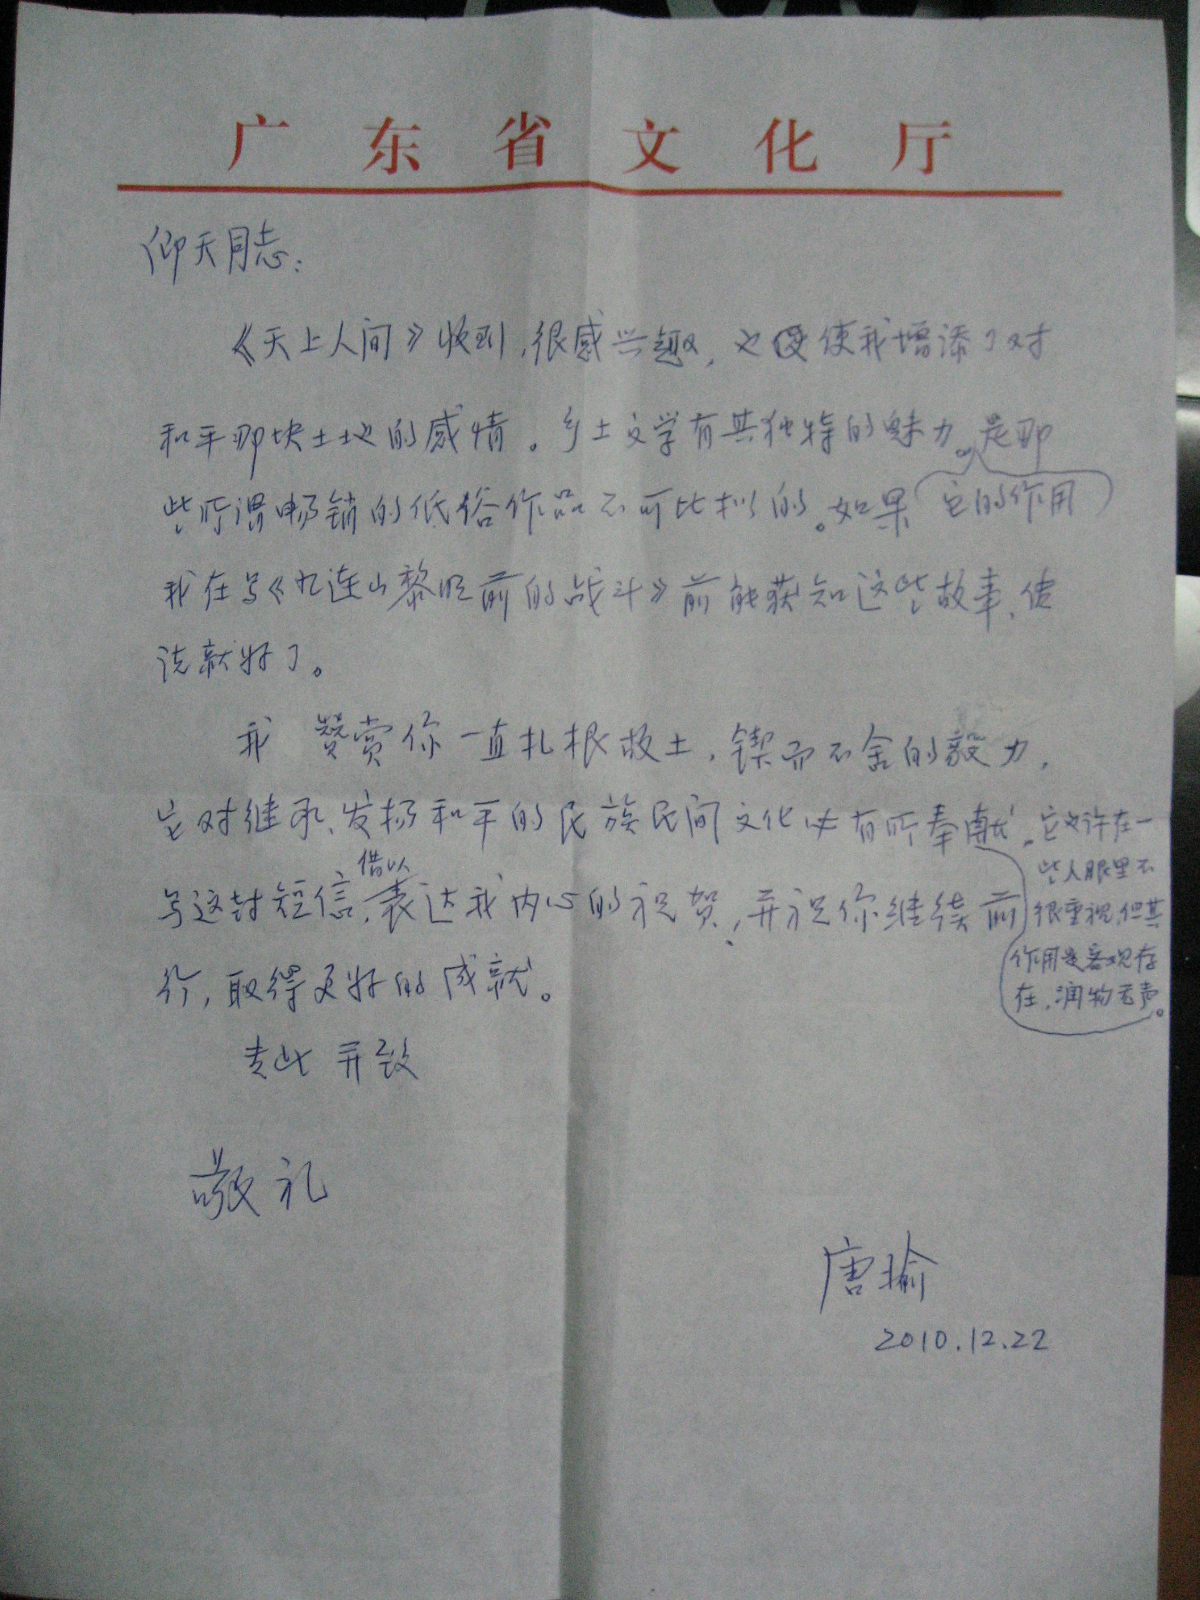 广东省文化厅
仰天同志：
《天上人间》收到，很感兴趣，使我增添了对
和平那块土地的感情。乡土文学有其独特的魅力。是那
些所谓畅销的低俗作品不可比拟的。如果
它的作用
我在写《九连山黎明前的战斗》前能获知这些故事、传
说就好了。
我赞赏你一直扎根故土，锲而不舍的毅力，
它对继承、发扬和平的民族民间文化必有所奉献。
它也许在一
些人眼里不
很重视，但其
作用是客观存
在，润物无声。
借以
写这封短信，表达我内心的祝贺，并祝你继续前
行，取得更好的成就。
专此 并致
敬礼
唐瑜
2010.12.22